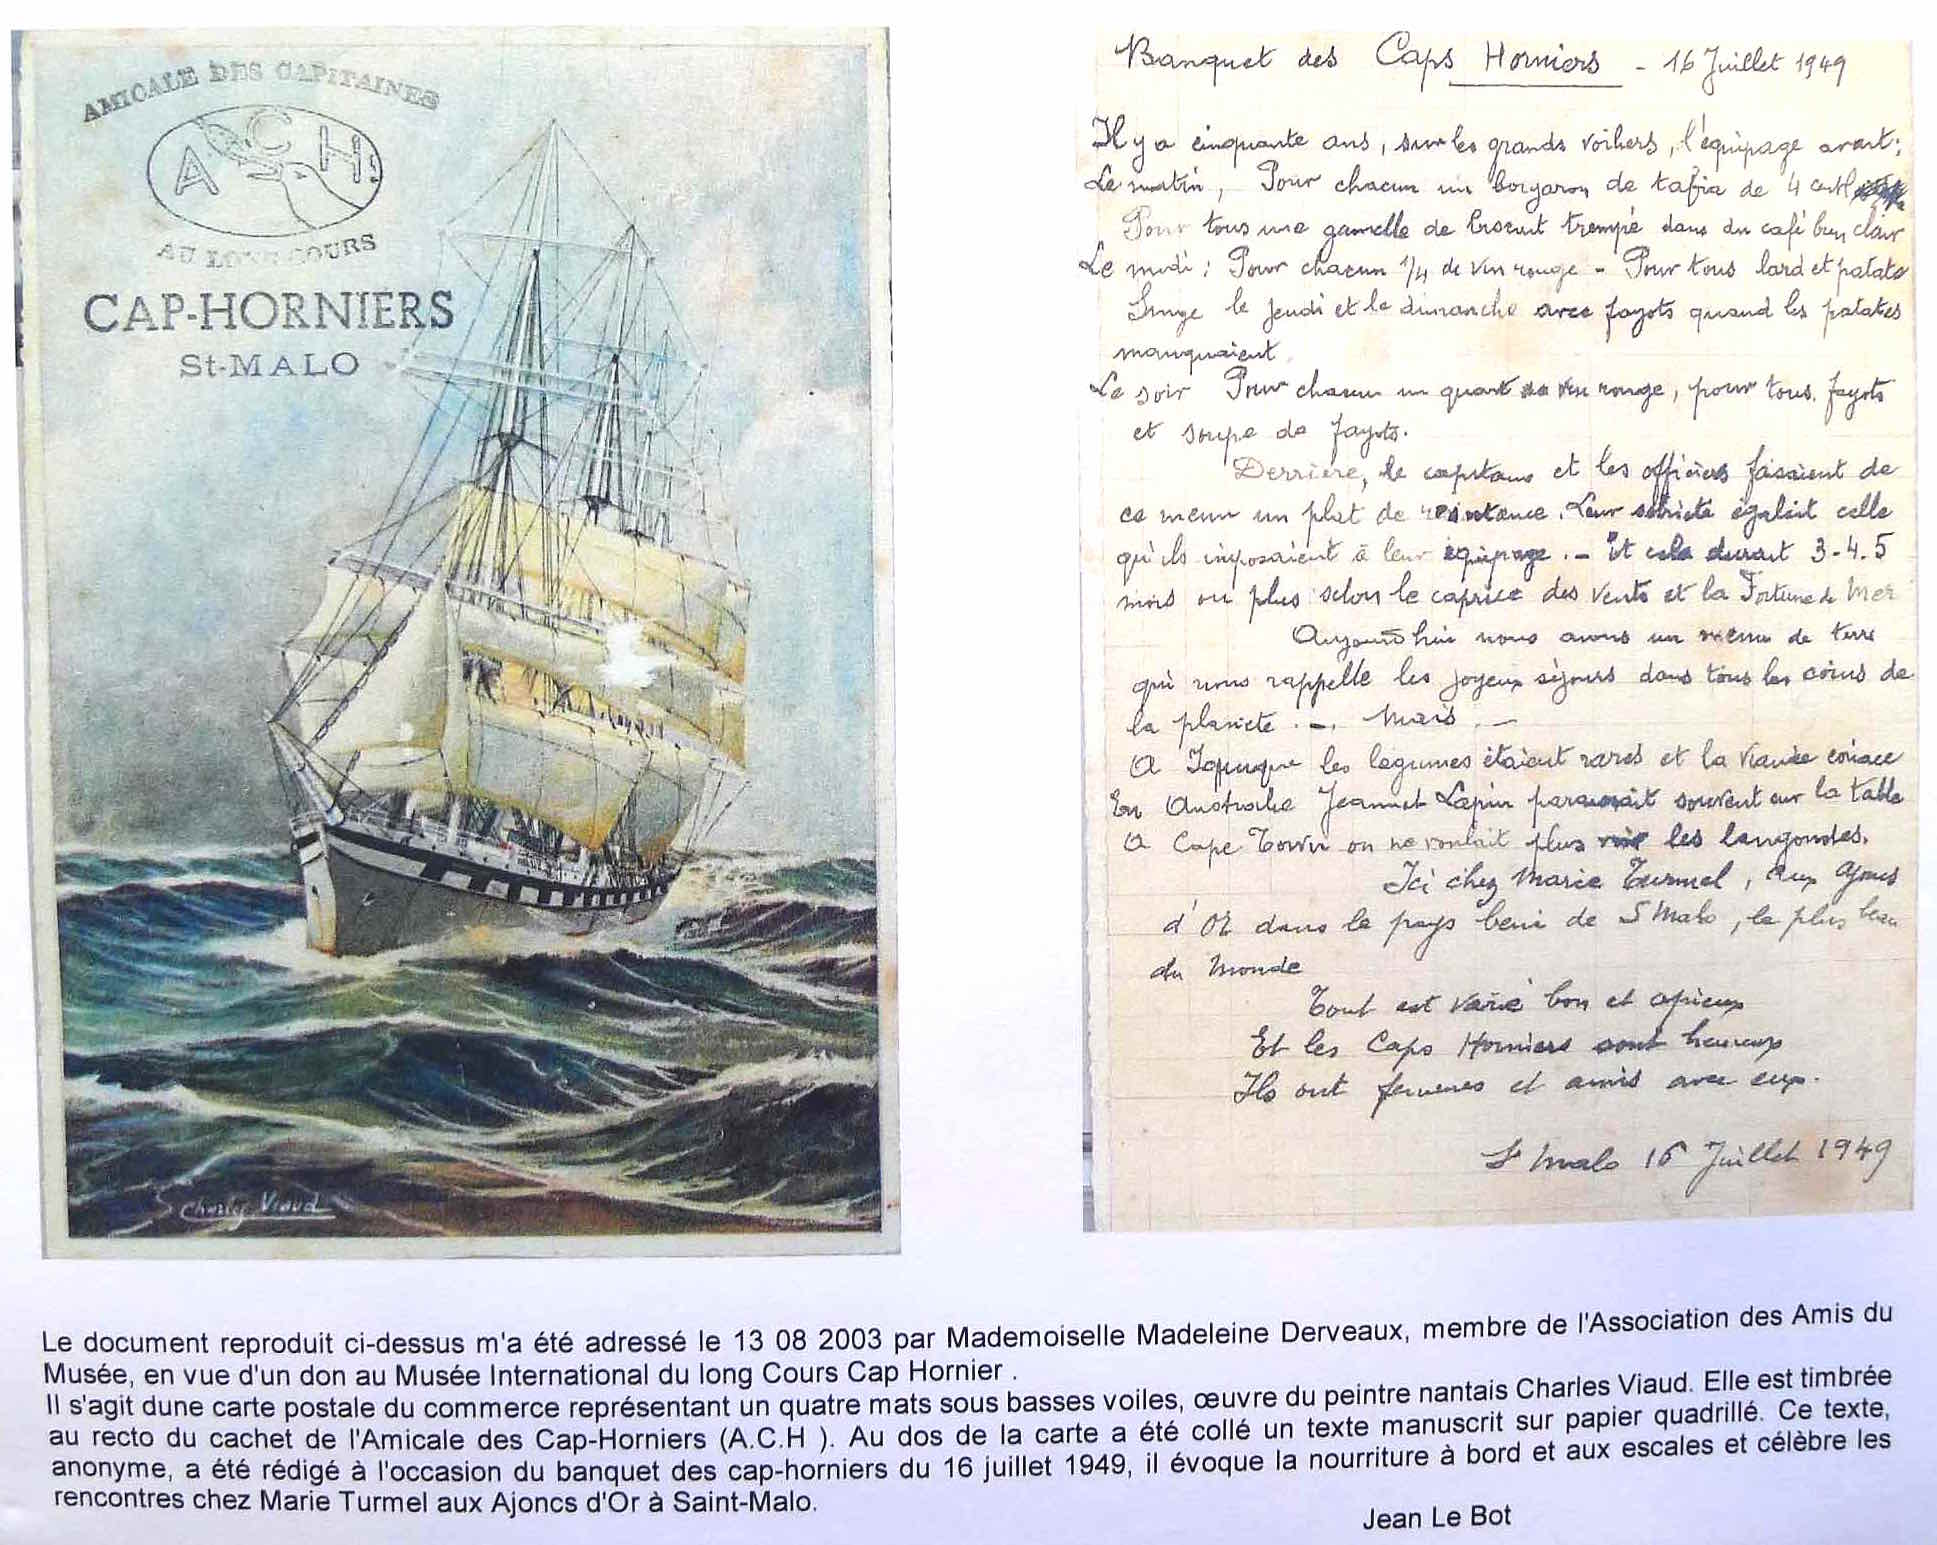 AMICALE DES CAPITAINES
A C H
AU LONG-COURS
CAP-HORNIERS
St-MALO
Charles Viaud
Banquet des Caps Horniers - 16 Juillet 1949
Il y a cinquante ans, sur les grands voiliers, l'équipage avait :
Le matin, Pour chacun un boujaron de tafia de 4 centil
Pour tous une gamelle de biscuit trempé dans du café bien clair
Le midi : Pour chacun 1/4 de vin rouge - Pour tous lard et patates
Singe le jeudi et le dimanche avec fayots quand les patates
manquaient
Le soir Pour chacun un quart de vin rouge, pour tous fayots
et soupe de fayots.
Derrière, le capitaine et les officiers faisaient de
ce menu un plat de résistance. Leur sobriété égalait celle
qu'ils imposaient à leur équipage. - Et cela durait 3-4.5
mois ou plus selon le caprice des vents et la Fortune de Mer
Aujourd'hui nous avons un menu de terre
qui nous rappelle les joyeux séjours dans tous les coins de
la planète. -. Mais. -
A Iquique les légumes étaient rares et la viande coriace
En Australie Jeannot Lapin paraissait souvent sur la table
A Cape Town on ne voulait plus voir les langoustes.
Ici chez Marie Turmel, aux Ajoncs
d'Or dans le pays beni de St Malo, le plus beau
du Monde
Tout est varié bon et copieux
Et les Caps Horniers sont heureux
Ils ont femmes et amis avec eux.
St Malo 16 Juillet 1949
Le document reproduit ci-dessus m'a été adressé le 13 08 2003 par Mademoiselle Madeleine Derveaux, membre de l'Association des Amis du
Musée, en vue d'un don au Musée International du long Cours Cap Hornier .
Il s'agit dune carte postale du commerce représentant un quatre mats sous basses voiles, œuvre du peintre nantais Charles Viaud. Elle est timbrée
au recto du cachet de l'Amicale des Cap-Horniers (A.C.H ). Au dos de la carte a été collé un texte manuscrit sur papier quadrillé. Ce texte,
anonyme, a été rédigé à l'occasion du banquet des cap-horniers du 16 juillet 1949, il évoque la nourriture à bord et aux escales et célèbre les
rencontres chez Marie Turmel aux Ajoncs d'Or à Saint-Malo.
Jean Le Bot